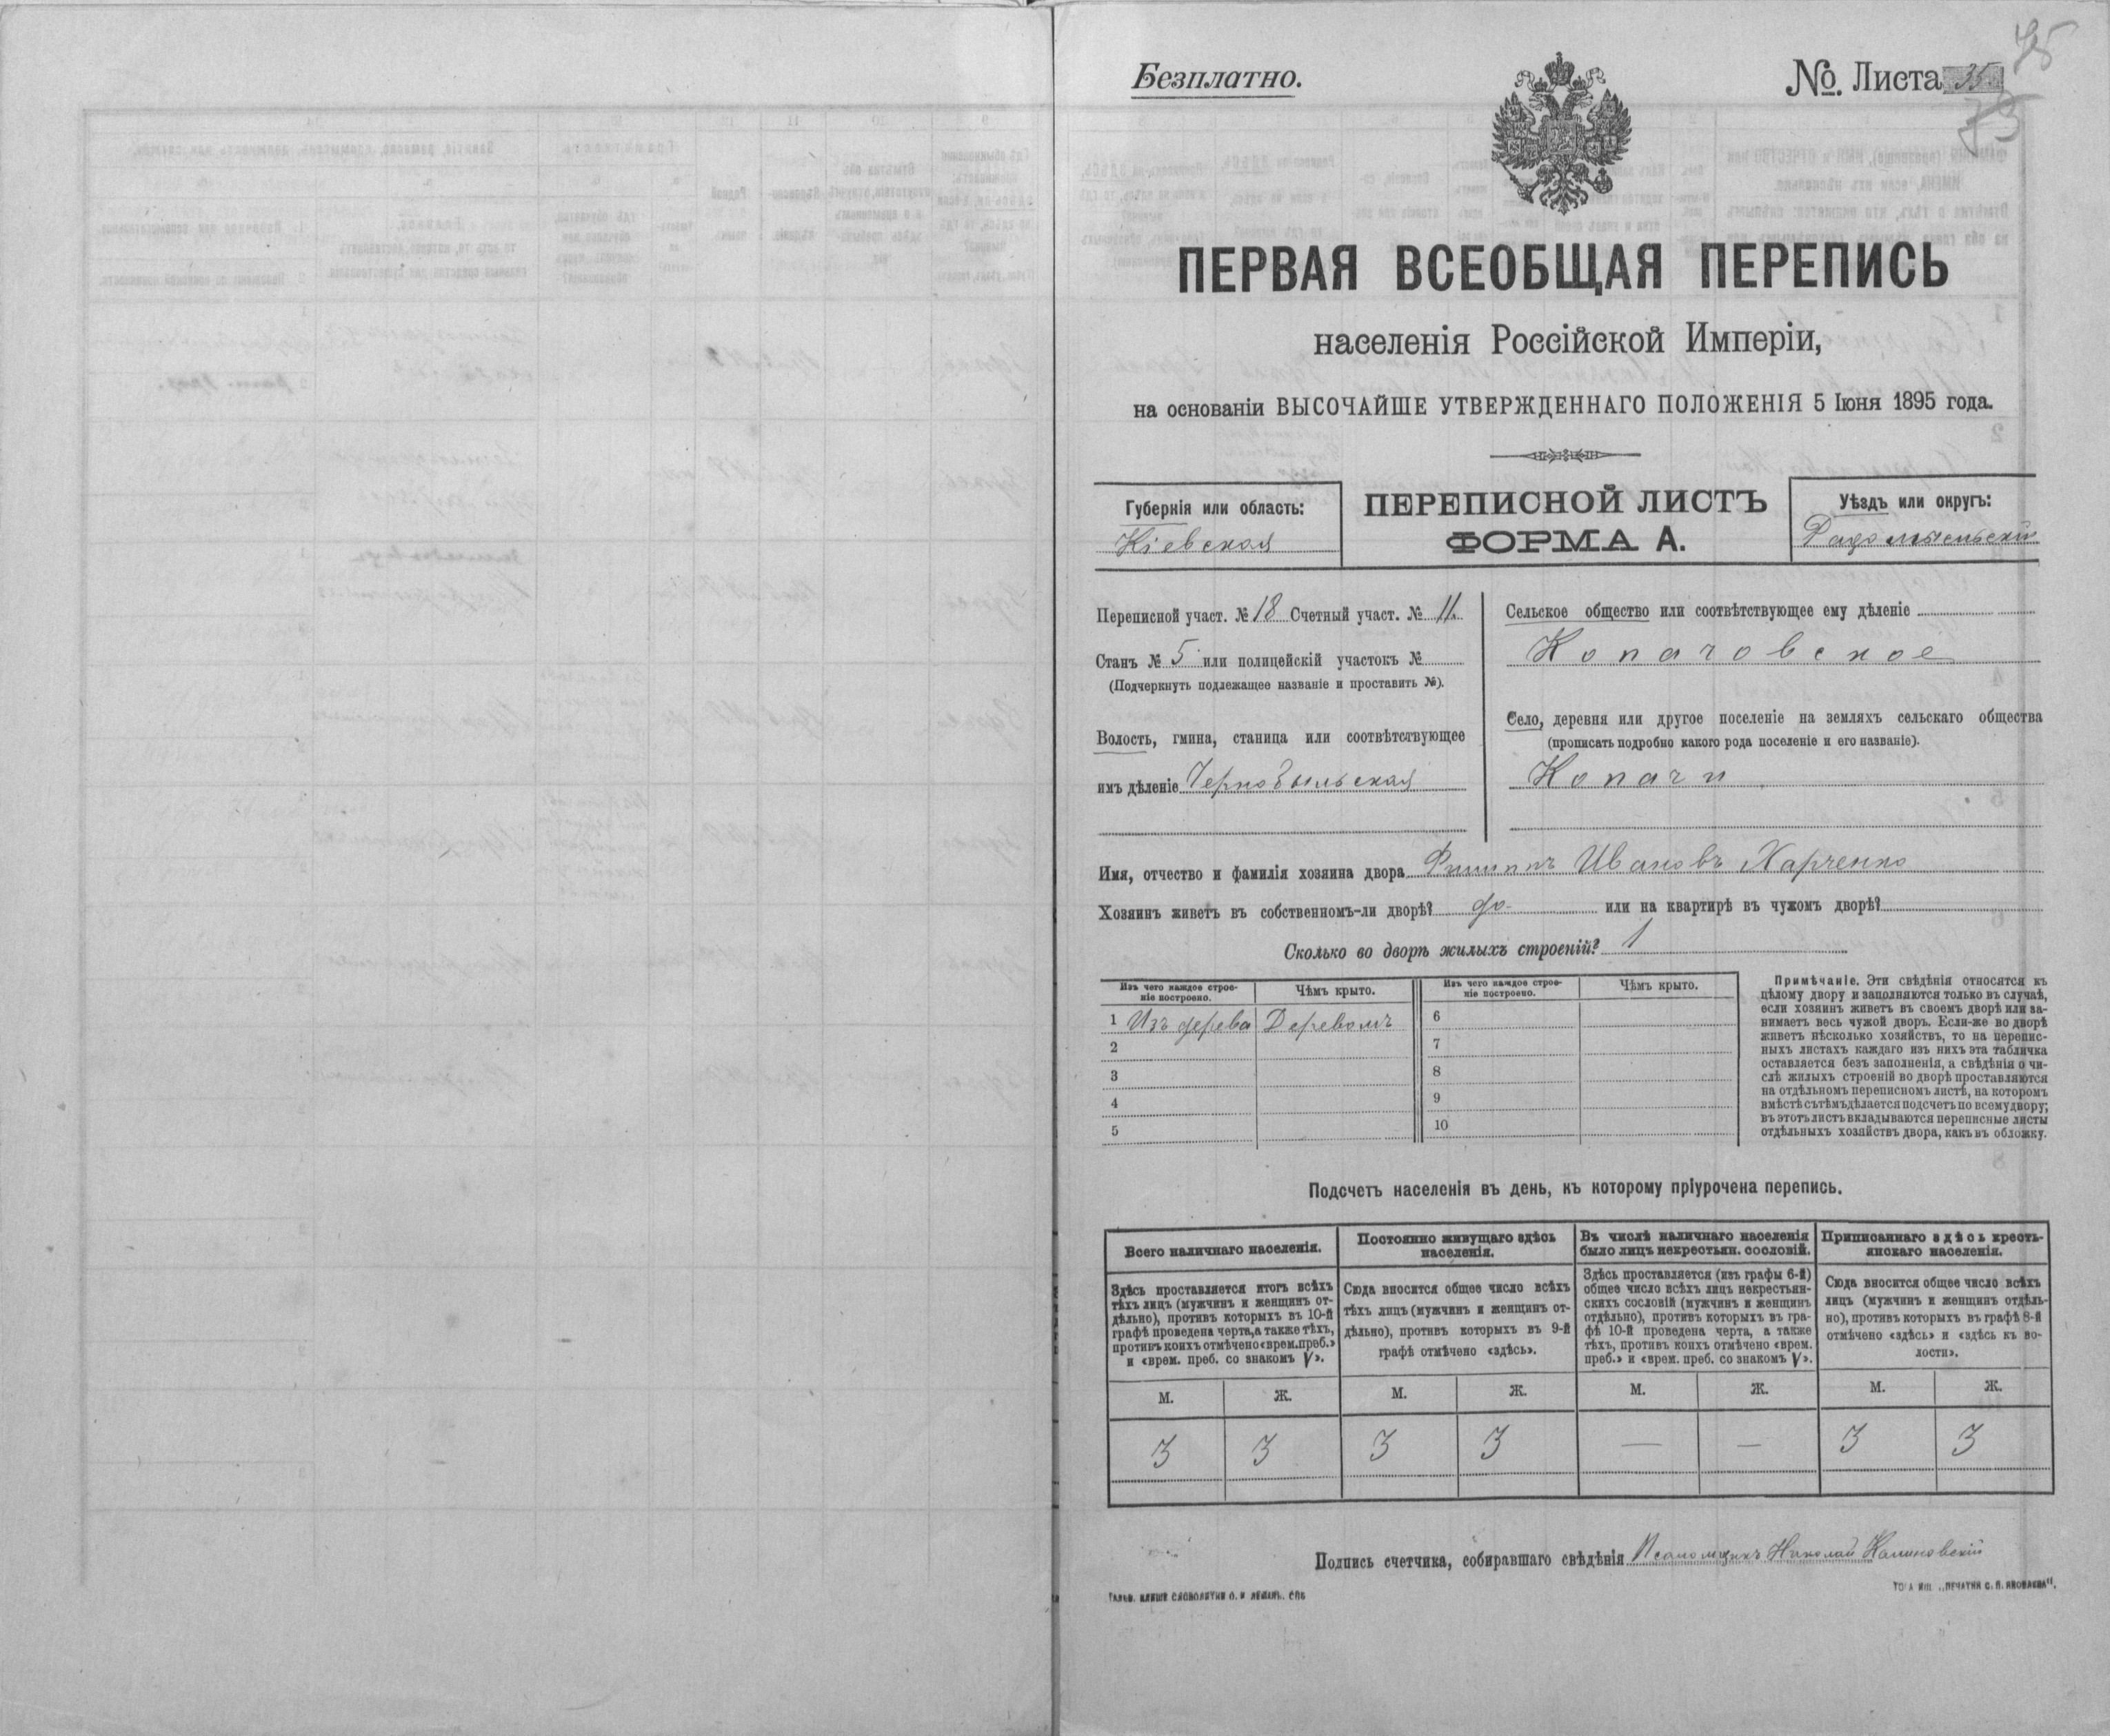 75
Безплатно.
№. Листа 35
73
ПЕРВАЯ ВСЕОБЩАЯ ПЕРЕПИСЬ
населенія Россійской Имперіи,
на основаніи ВЫСОЧАЙШЕ УТВЕРЖДЕННАГО ПОЛОЖЕНІЯ 5 Іюня 1895 года.
Губернія или область:
Кіевская
ПЕРЕПИСНОЙ ЛИСТЪ
ФОРМА А.
Уѣздъ или округъ:
Радомысльскій
Переписной участ. № 18 Счетный участ. № 11
Станъ № 5 или полицейскій участокъ №
(Подчеркнуть подлежащее названіе и проставить №).
Волость, гмина, станица или соотвѣтствующее
имъ дѣленіе Чернобыльская
Сельское общество или соотвѣтствующее ему дѣленіе
Копачовское
Село, деревня или другое поселеніе на земляхъ сельскаго общества
(прописать подробно какого рода поселеніе и его названіе).
Копачи
Имя, отчество и фамилія хозяина двора Филиппъ Ивановъ Харченко
Хозяинъ живетъ въ собственномъ-ли дворѣ? да или на квартирѣ въ чужомъ дворѣ?
Сколько во дворѣ жилыхъ строеній? 1
Изъ чего каждое строе-
ніе построено.
Чѣмъ крыто.
Изъ чего каждое строе-
ніе построено.
Чѣмъ крыто.
1 Изъ дерева Деревомъ 6
2 7
3 8
4 9
5 10
Примѣчаніе. Эти свѣдѣнія относятся къ
цѣлому двору и заполняются только въ случаѣ,
если хозяинъ живетъ въ своемъ дворѣ или за-
нимаетъ весь чужой дворъ. Если-же во дворѣ
живетъ нѣсколько хозяйствъ, то на перепис-
ныхъ листахъ каждаго изъ нихъ эта табличка
оставляется безъ заполненія, а свѣдѣнія о чи-
слѣ жилыхъ строеній во дворѣ проставляются
на отдѣльномъ переписномъ листѣ, на которомъ
вмѣстѣ съ тѣмъ дѣлается подсчетъ по всему двору;
въ этотъ листъ вкладываются переписные листы
отдѣльныхъ хозяйствъ двора, какъ въ обложку.
Подсчетъ населенія въ день, къ которому пріурочена перепись.
Всего наличнаго населенія.
Здѣсь проставляется итогъ всѣхъ
тѣхъ лицъ (мужчинъ и женщинъ от-
дѣльно), противъ которыхъ въ 10-й
графѣ проведена черта, а также тѣхъ,
противъ коихъ отмѣчено «врем. преб.»
и «врем. преб. со знакомъ V».
Постоянно живущаго здѣсь
населенія.
Сюда вносится общее число всѣхъ
тѣхъ лицъ (мужчинъ и женщинъ от-
дѣльно), противъ которыхъ въ 9-й
графѣ отмѣчено «здѣсь».
Въ числѣ наличнаго населенія
было лицъ некрестьян. сословій.
Здѣсь проставляется (изъ графы 6-й)
общее число всѣхъ лицъ некрестьян-
скихъ сословій (мужчинъ и женщинъ
отдѣльно), противъ которыхъ въ гра-
фѣ 10-й проведена черта, а также
тѣхъ, противъ коихъ отмѣчено «врем.
преб.» и «врем. преб. со знакомъ V».
Приписаннаго здѣсь кресть-
янскаго населенія.
Сюда вносится общее число всѣхъ
лицъ (мужчинъ и женщинъ отдѣль-
но), противъ которыхъ въ графѣ 8-й
отмѣчено «здѣсь» и «здѣсь къ во-
лости».
М. Ж. М. Ж. М. Ж. М. Ж.
3 3 3 3 — — 3 3
Подпись счетчика, собиравшаго свѣдѣнія Псаломщикъ Николай Калиновскій
ГАЛЬВ. КЛИШЕ СЛОВОЛИТНИ О. И ЛЕМАНЪ. СПБ
„ПЕЧАТНИ С. П. ЯКОВЛЕВА".